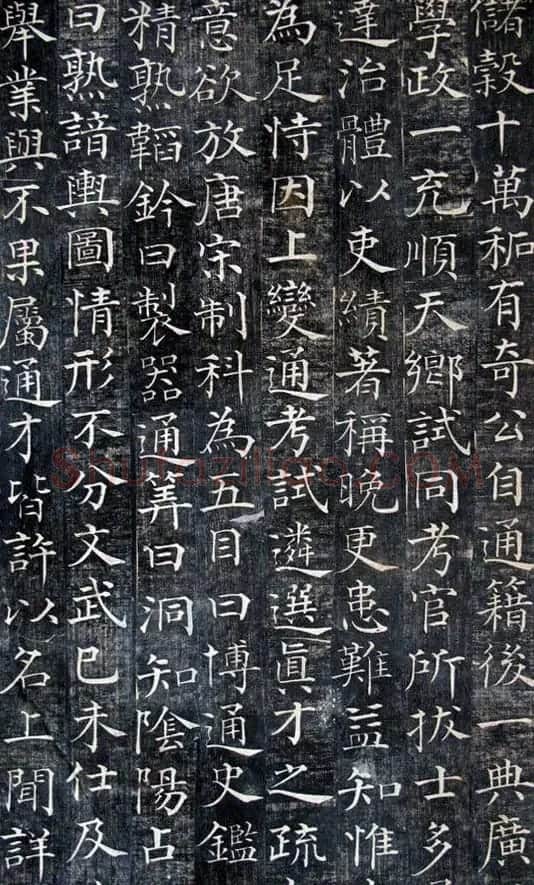 儲穀十萬有奇公自通籍後一典廣
學政一充順天鄉試同考官所拔士多
達治體以吏績著稱晚更患難益知惟
為足恃因上變通考試遴選眞才之疏
意欲放唐宋制科為五目曰博通史鑑
精熟韜鈐曰製器通筭曰洞知陰陽占
曰熟諳輿圖情形不分文武已未仕及
舉業與不果屬通才皆許以名上聞詳
Shufaziliao.COM